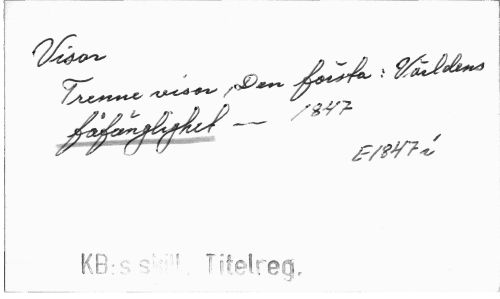 Visor
Trenne visor, Den första: Världens
fåfänglighet — 1847
E1847 i
KB:s skill. Titelreg.